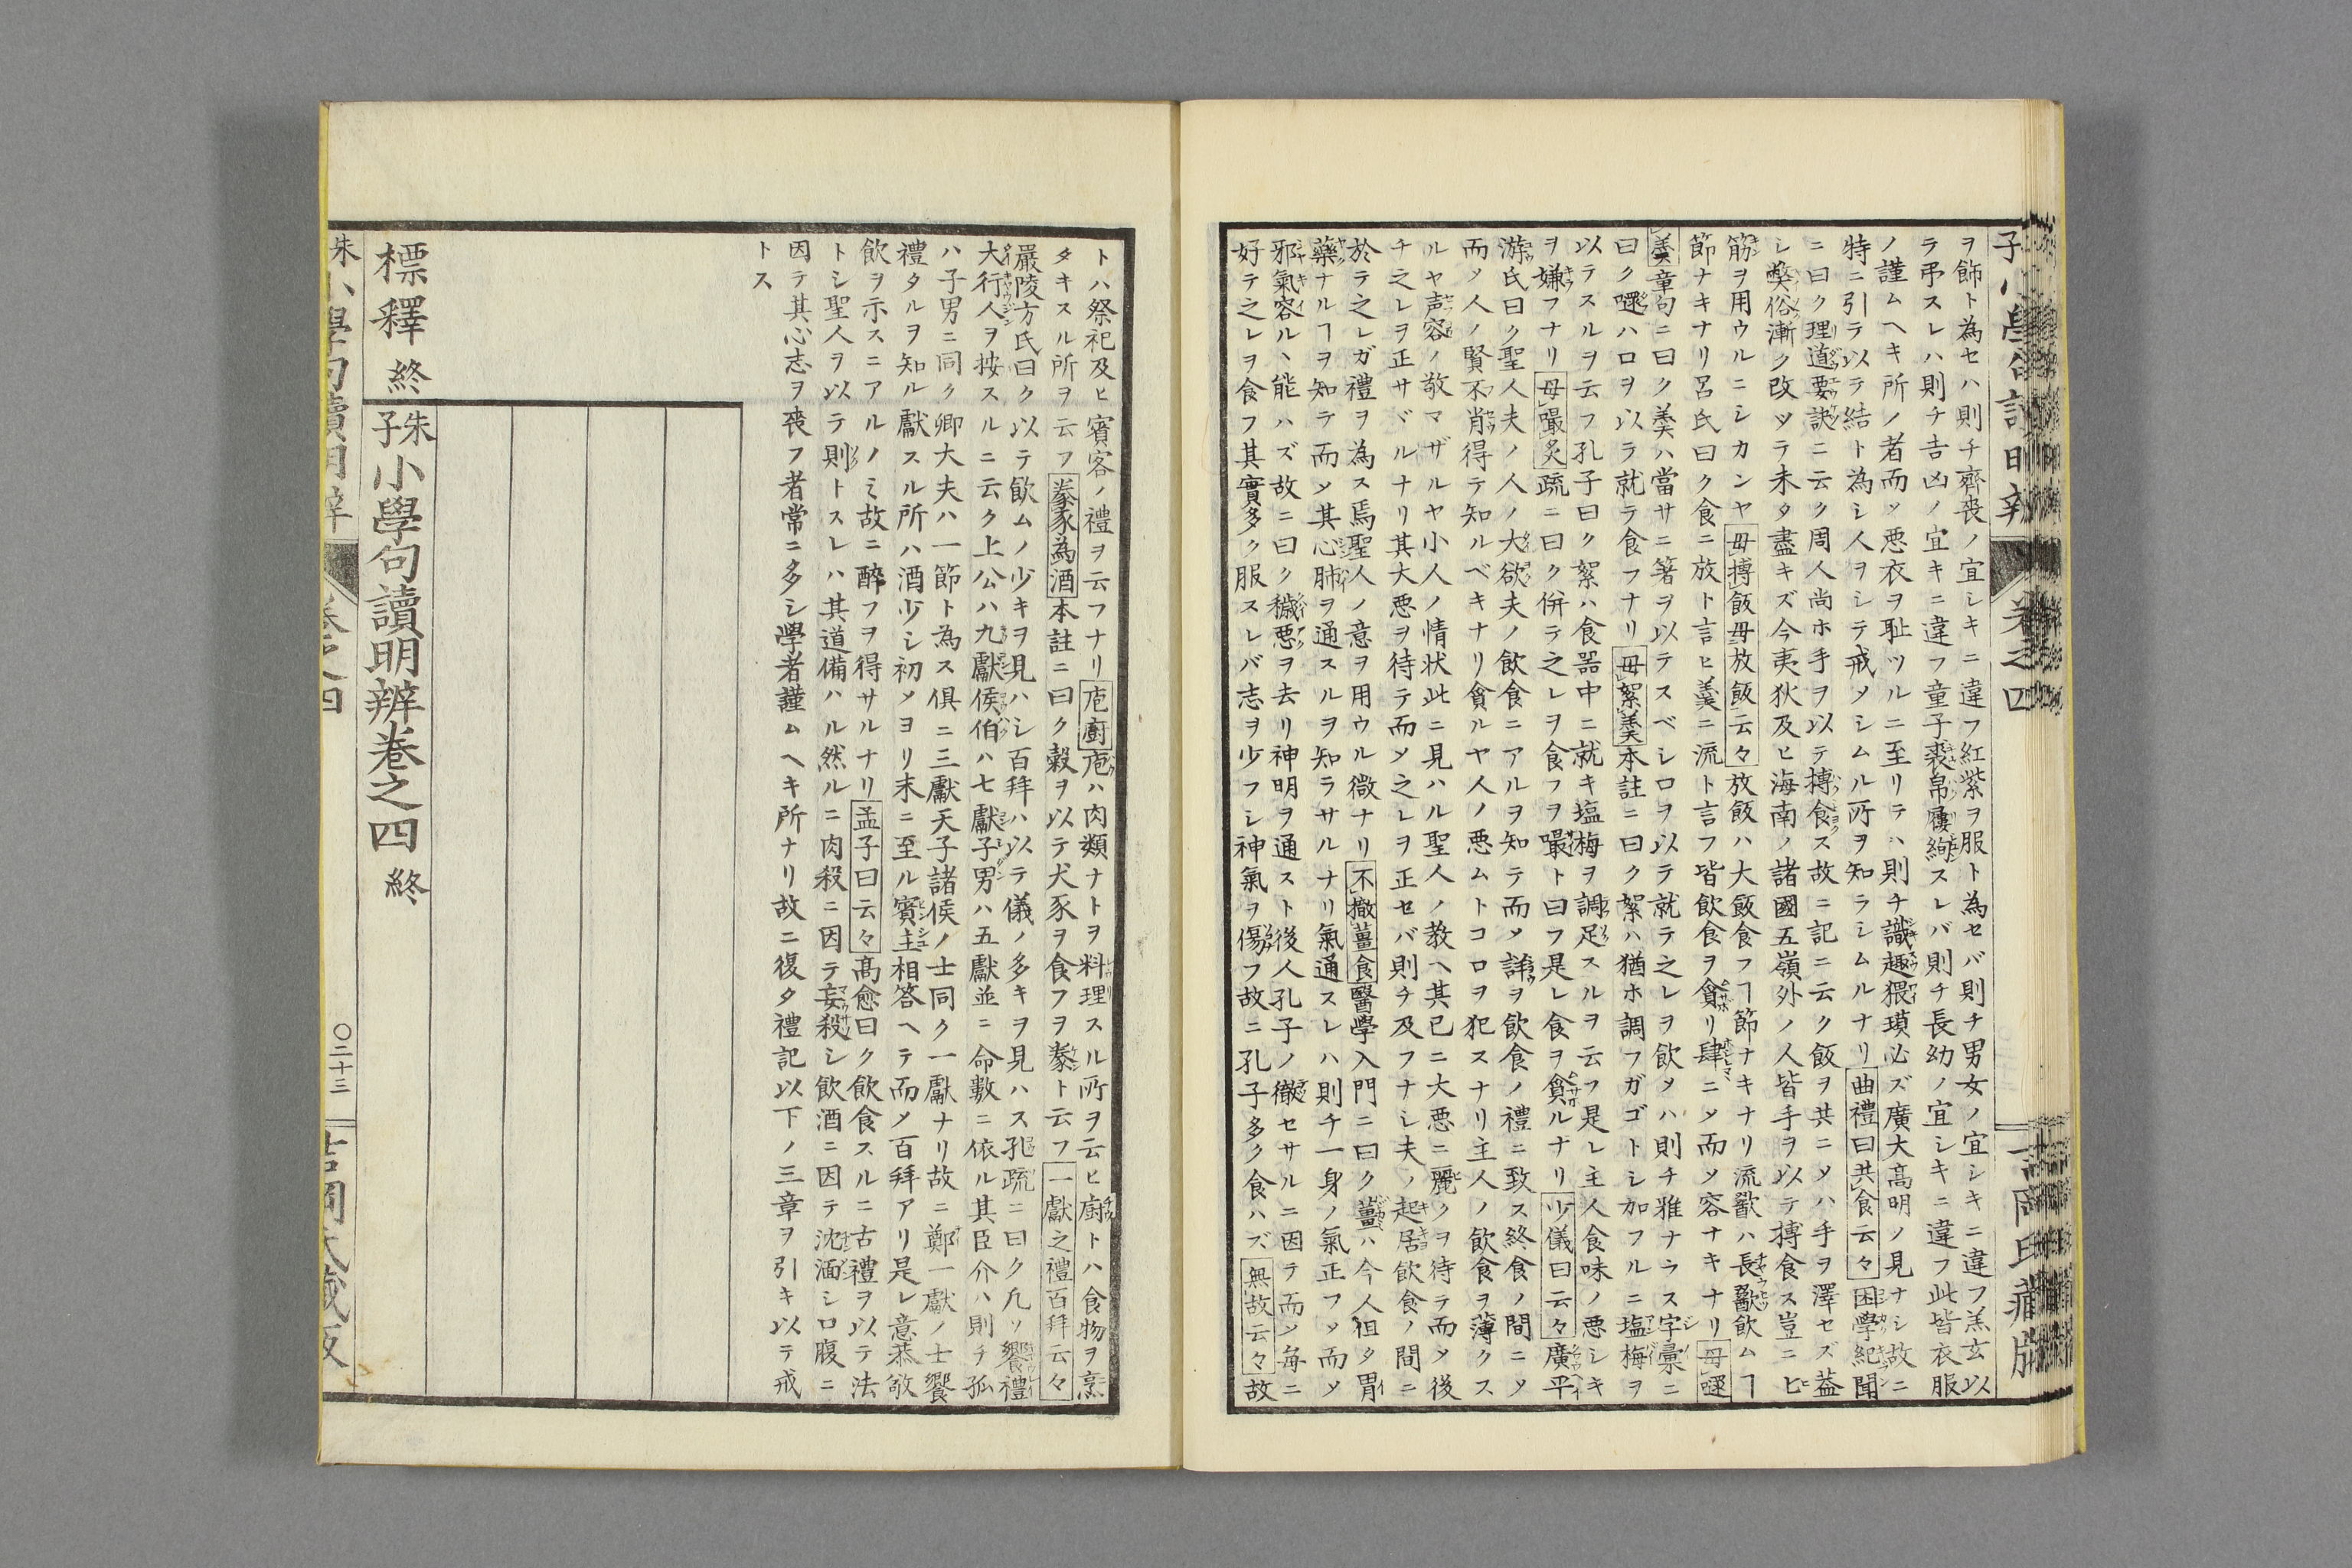 ヲ飾ト為セハ則チ齊喪ノ宜シキニ違フ紅紫ヲ服ト為セバ則チ男女ノ宜シキニ違フ羔玄以
ラ弔スレハ則チ吉凶ノ宜キニ違フ童子裘帛履絇スレバ則チ長幼ノ宜シキニ違フ此皆衣服
ノ謹ムヘキ所ノ者而ソ悪衣ヲ耻ツルニ至リテハ則チ識趣猥瑣必ズ廣大高明ノ見ナシ故ニ
特ニ引テ以テ結ト為シ人ヲシテ戒メシムル所ヲ知ラシムルナリ曲禮曰共食云々困學紀聞
ニ曰ク理道要訣ニ云ク周人尚ホ手ヲ以テ搏食ス故ニ記ニ云ク飯ヲ共ニメハ手ヲ澤セズ葢
シ弊俗漸ク改ツテ未タ盡キズ今夷狄及ヒ海南ノ諸國五嶺外ノ人皆手ヲ以テ摶食ス豈ニヒ
筯ヲ用ウルニシカンヤ毋摶飯毋放飯云々放飯ハ大飯食フヿ節ナキナリ流歠ハ長歠飲ムヿ
節ナキナリ呂氏曰ク食ニ放ト言ヒ羹ニ流ト言フ皆飲食ヲ貪リ肆ニメ而メ容ナキナリ毋嚃
羹章句ニ曰ク羹ハ當サニ箸ヲ以テスベシロヲ以テ就テ之レヲ飲メハ則チ雅ナラス字彙ニ
曰ク嚃ハロヲ以ラ就ラ食フナリ毋絮羹本註ニ曰ク絮ハ猶ホ調フガゴトシ加フルニ塩梅ヲ
以テスルヲ云フ孔子曰ク絮ハ食器中ニ就キ塩梅ヲ調足スルヲ云フ是レ主人食味ノ悪シキ
ヲ嫌フナリ毋嘬炙疏ニ曰ク併テ之レヲ食フヲ嘬ト曰フ是レ食ヲ貪ルナリ少儀曰云々廣平
游氏曰ク聖人夫ノ人ノ大欲夫ノ飲食ニアルヲ知テ而メ諄ヲ飲食ノ禮ニ致ス終食ノ間ニメ
而ソ人ノ賢不肖得テ知ルベキナリ貪ルヤ人ノ悪ムトコロヲ犯スナリ主人ノ飲食ヲ薄クス
ルヤ声容ノ敬マザルヤ小人ノ情状此ニ見ハル聖人ノ教ヘ其已ニ大悪ニ麗クヲ待テ而メ後
チ之レヲ正サドルナリ其大悪ヲ待テ而メ之レヲ正セバ則チ及フナシ夫ノ起居飲食ノ間ニ
於テ之レガ禮ヲ為ス焉聖人ノ意ヲ用ウル微ナリ不撤薑食醫學入門ニ曰ク薑ハ今人徂タ胃
藥ナルヿヲ知テ而メ其心肺ヲ通スルヲ知ラサルナリ氣通スレハ則チ一身ノ氣正フメ而メ
邪氣容ルヽ能ハズ故ニ曰ク穢悪ヲ去リ神明ヲ通スト後人孔子ノ徹セサルニ因テ而メ毎ニ
好テ之レヲ食フ其實多ク服スレバ志ヲ少フシ神氣ヲ傷フ故ニ孔子多ク食ハズ無故云々故
トハ祭祀及ヒ賓客ノ禮ヲ云フナリ庖廚庖ハ肉類ナトヲ料理スル所ヲ云ヒ廚トハ食物ヲ烹
タキスル所ヲ云フ豢豕為酒本註ニ曰ク糓ヲ以テ犬豕ヲ食フヲ豢ト云フ一獻之禮百拜云々
嚴陵方氏曰ク以テ飲ムノ少キヲ見ハシ百拜ハ以テ儀ノ多キヲ見ハス孔疏ニ曰ク凡ソ饗禮
大行人ヲ按スルニ云ク上公ハ九獻侯伯ハ七獻子男ハ五獻並ニ命數ニ依ル其臣介ハ則チ孤
ハ子男ニ同ク卿大夫ハ一節ト為ス俱ニ三獻天子諸侯ノ士同ク一獻ナリ故ニ鄭一獻ノ士饗
禮タルヲ知ル獻スル所ハ酒少シ初メヨリ末ニ至ル賓主相答ヘテ而メ百拜アリ是レ意恭敬
飲ヲ示スニアルノミ故ニ醉フヲ得サルナリ孟子曰云々髙愈曰ク飲食スルニ古禮ヲ以テ法
トシ聖人ヲ以テ則トスレハ其道備ハル然ルニ肉殺ニ因テ妄殺シ飲酒ニ因テ沈湎シロ腹ニ
因テ其心志ヲ喪フ者常ニ多シ學者謹ムヘキ所ナリ故ニ復タ禮記以下ノ三章ヲ引キ以テ戒
トス
標釋 終
朱子小學句讀明辨巻之四 終
〇二十三